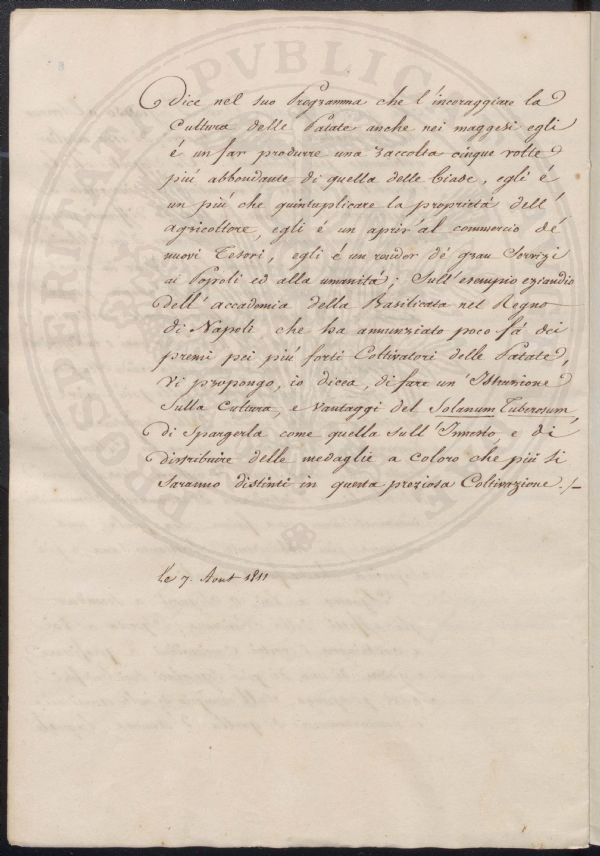 dice nel suo Programma che l'incoraggiare la
Cultura delle Patate anche nei maggesi egli
é un far produrre una raccolta cinque volte
piú abbondante di quella delle biade, egli é
un piú che quintuplicare la proprietá dell'
agricoltore, egli é un aprir'al commercio dé
nuovi Tesori, egli é un render dé gran Servizi
ai Popoli ed alla umanitá; Sull'esempio eziandio
dell'accademia della Basilicata nel Regno
di Napoli che ha annunziato poco fá dei
premi pei piú forti Coltivatori delle Patate,
Vi propongo, io dicea, di fare un'Istruzione
Sulla Cultura, e Vantaggi del Solanum Tuberosum,
di Spargerla come quella sull'Innesto, e di
distribuire delle medaglie a coloro che piú si
Saranno distinti in questa preziosa Coltivazione./_
le 7. Aout 1811
PROSPERITATI PVBLICAE